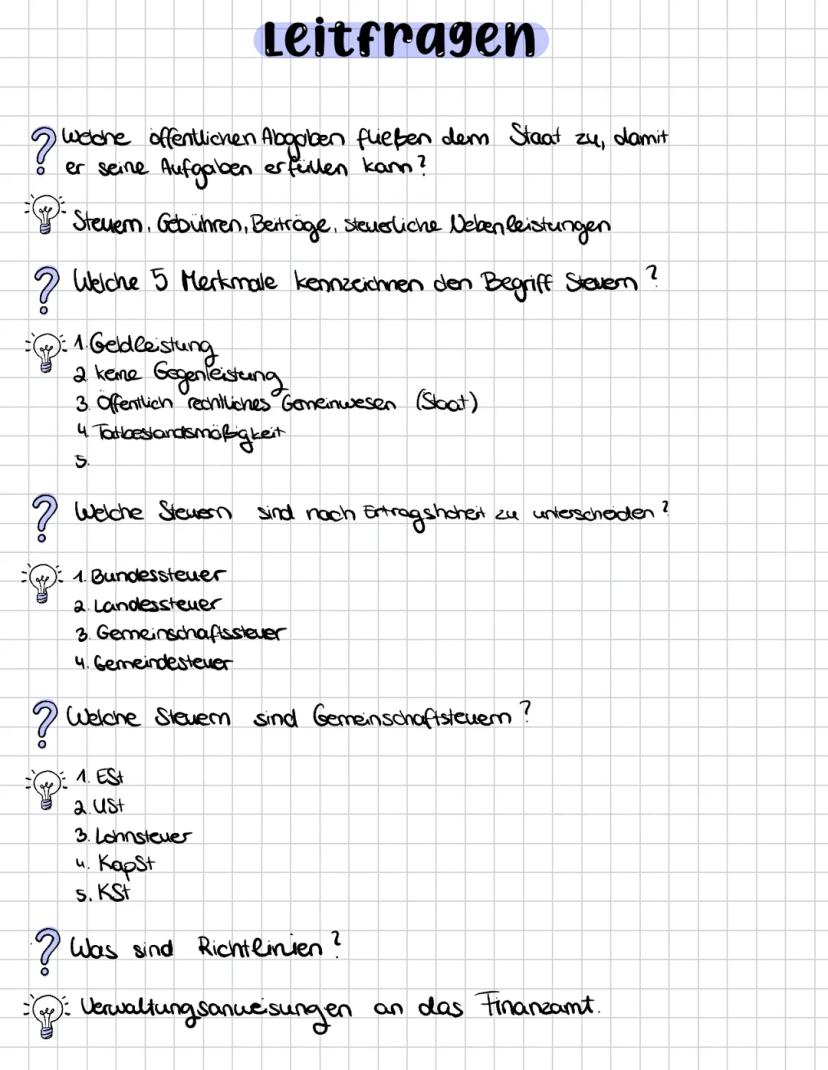 Leitfragen
? Welche öffentlichen Abgaben fließen dem Staat zu, damit
er seine Aufgaben erfüllen kann?
Steuern, Gebühren, Beiträge, steuerliche Nebenleistungen
? Welche 5 Merkmale kennzeichnen den Begriff Steuern?
1. Geldleistung
2. keine Gegenleistung
3. Öffentlich rechtliches Gemeinwesen (Staat)
4. Tatbestandsmäßigkeit
5.
? Welche Steuern sind nach Ertragshoheit zu unterscheiden?
1. Bundessteuer
2. Landessteuer
3. Gemeinschaftssteuer
4. Gemeindesteuer
? Welche Steuern sind Gemeinschaftsteuern?
1. ESt
2. USt
3. Lohnsteuer
4. KapSt
5. KSt
? Was sind Richtlinien?
Verwaltungsanweisungen an das Finanzamt.